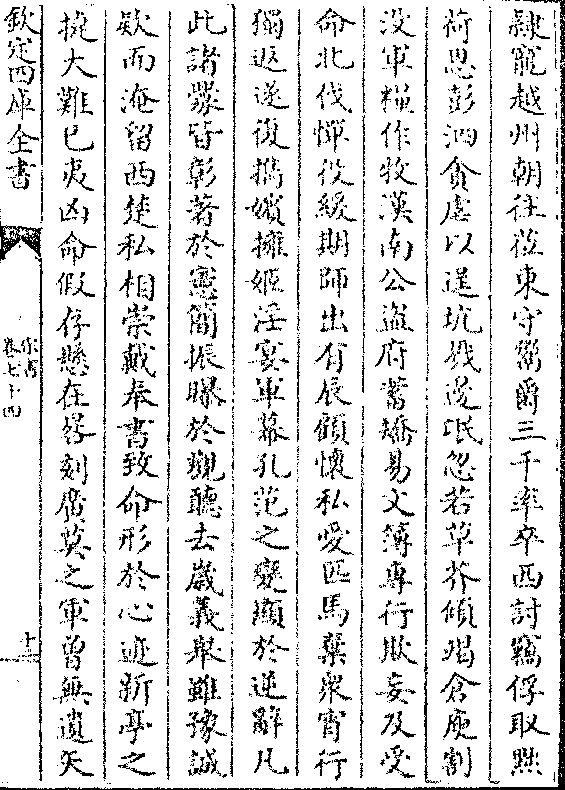 隷寵越州朝往莅東守鬻爵三千率卒西討竊俘取黜
荷恩彭泗貪虐以逞坑戮邊氓忽若草芥傾竭倉庾割
沒軍糧作牧漢南公盜府蓄矯易文簿專行欺妄及受
命北伐憚役緩期師出有辰顧懷私愛匹馬棄衆宵行
獨返遂復携嬪擁姬淫宴軍幕孔范之變顯於逆辭凡
此諸釁皆彰著於憲簡振曝於觀聽去歲義舉雖豫誠
欵而淹留西楚私相崇戴奉書致命形於心迹新亭之
捷大難已夷凶命假存懸在晷刻廣莫之軍曾無遺矢
欽定四庫全書
宋書
卷七十四
十